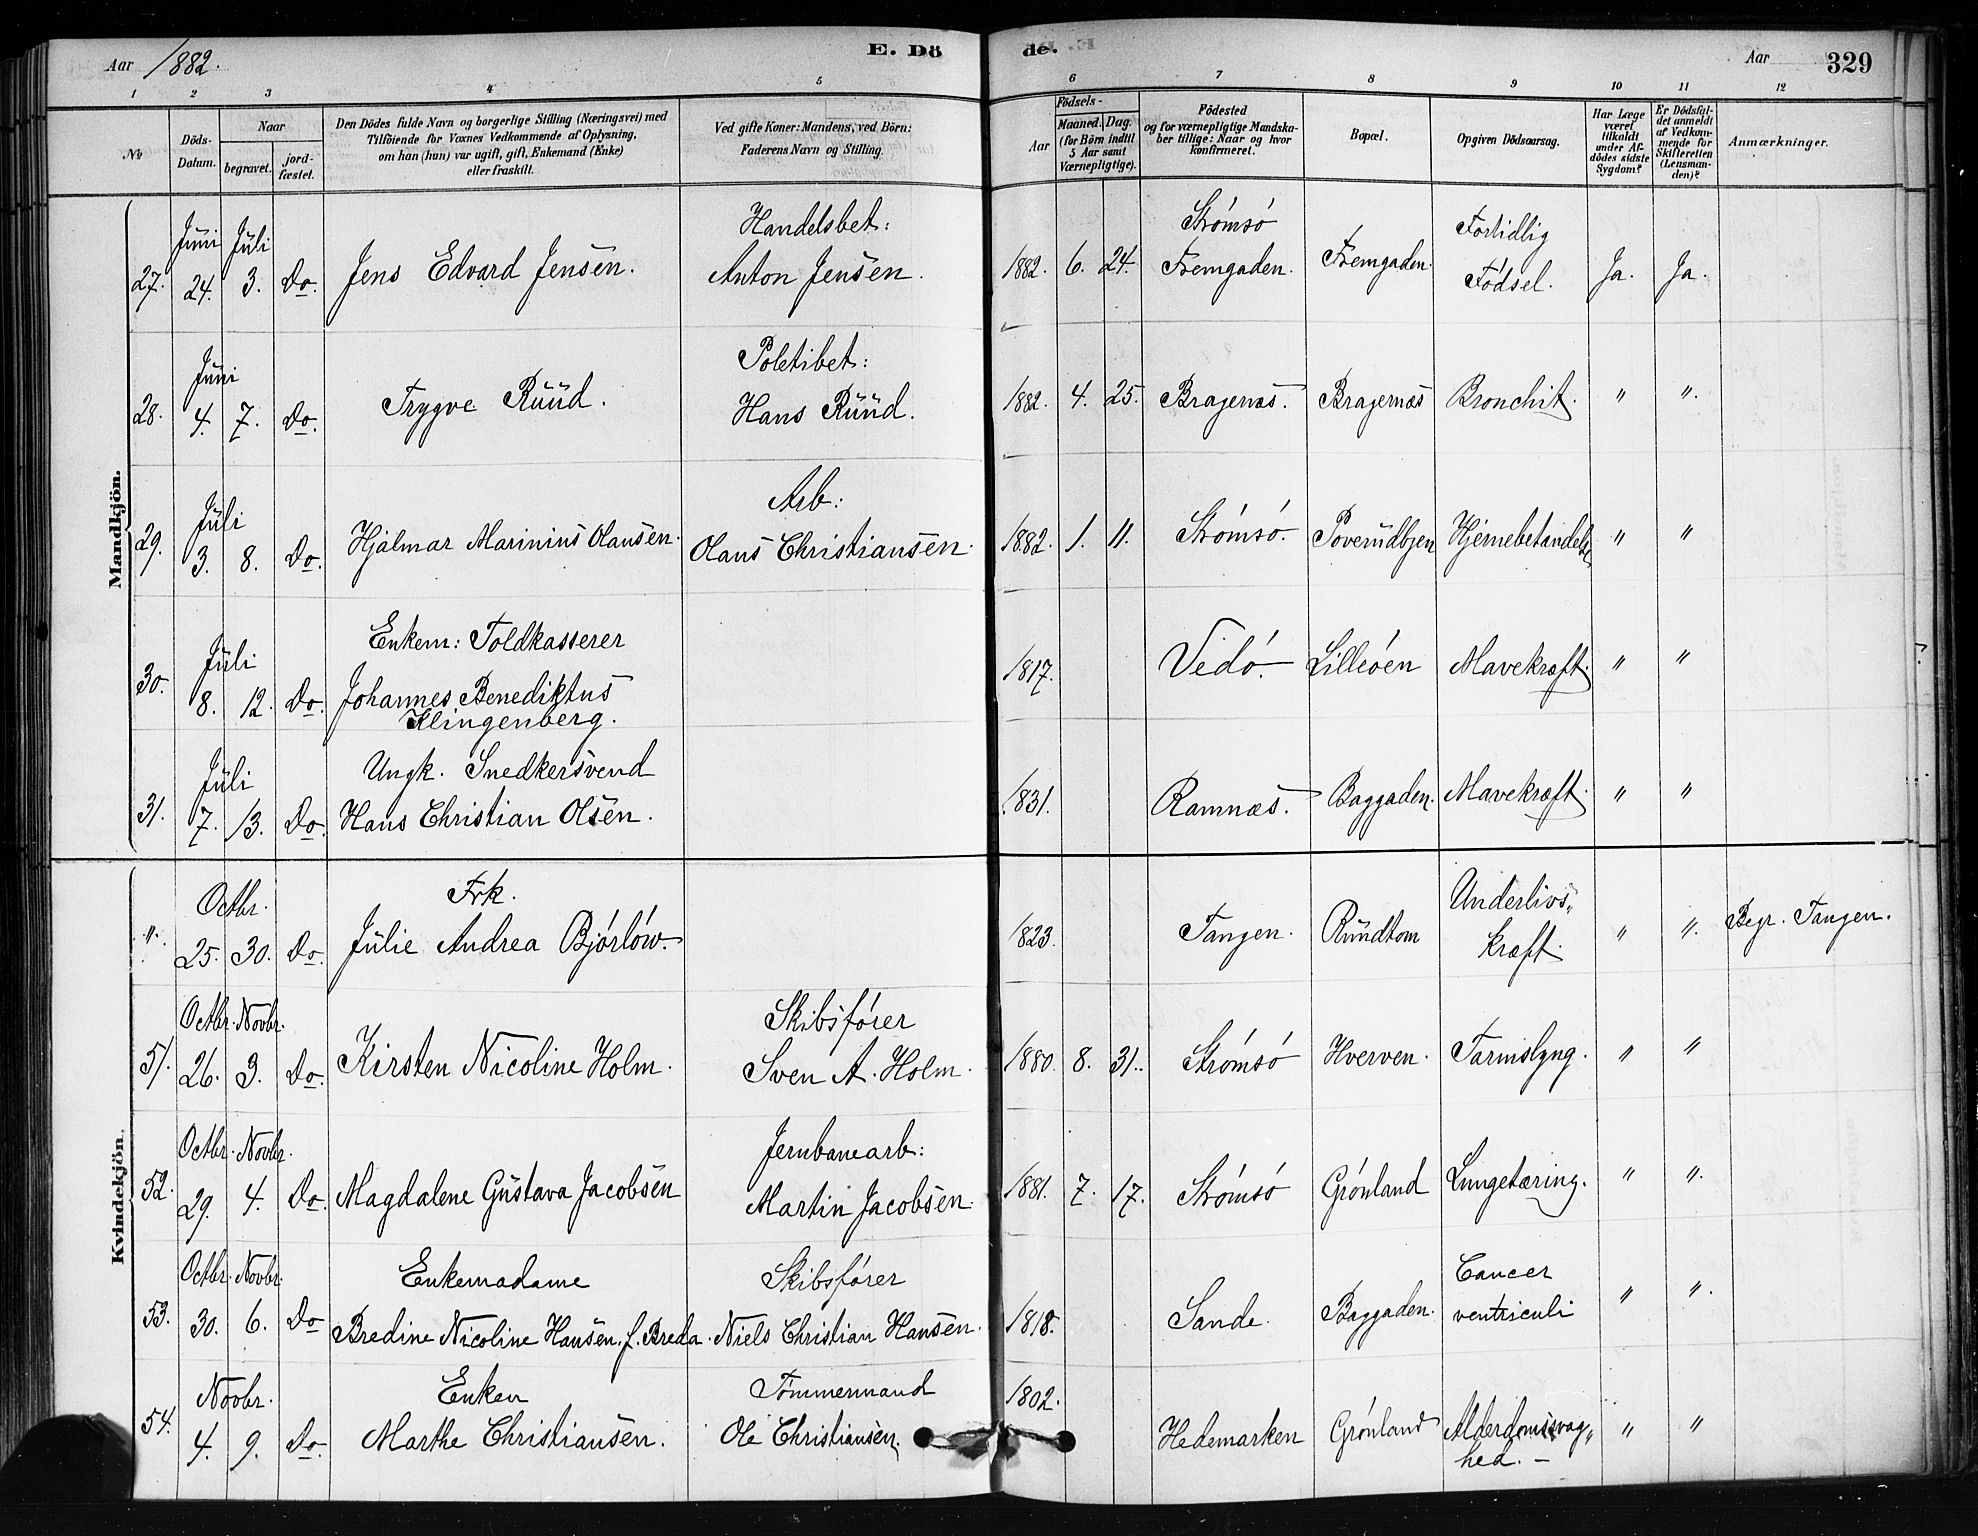 Aar 1882. E. Dö de. Aar 329
1 2 3 4 5 6 7 8 9 10 11 12
No.
Döds-Datum.
Naar
begravet.
jordfæstet.
Den Dödes fulde Navn og borgerlige Stilling (Næringsvei) med
Tilföiende for Voxnes Vedkommende af Oplysning,
om han (hun) var ugift, gift, Enkemand (Enke)
eller fraskilt.
Ved gifte Koner: Mandens, ved Börn:
Faderens Navn og Stilling.
Födsels-
Aar
Maaned. Dag.
(for Börn indtil
5 Aar samt
Værnepligtige).
Födested
og for værnepligtige Mandska-
ber tillige: Naar og hvor
konfirmeret.
Bopæl.
Opgiven Dödsaarsag.
Har Læge
været
tilkaldt
under Af-
dödes sidste
Sygdom?
Er Dödsfal-
det anmeldt
af Vedkom-
mende for
Skifteretten
(Lensman-
den)?
Anmærkninger.
Mandkjön.
Juni Juli Handelsbet: Strømsø Fortidlig
27. 24. 3. Do. Jens Edvard Jensen. Anton Jensen. 1882. 6. 24. Fremgaden. Fremgaden. Fødsel. Ja. Ja.
Juni Poletibet:
28. 4. 7. Do. Trygve Ruud. Hans Ruud. 1882. 4. 25. Bragenæs. Bragernæs Bronchit. " ".
Juli Arb:
29. 3. 8. Do. Hjalmar Marinius Olausen. Olaus Christiansen. 1882. 1. 11. Strømsø. " "
Juli Enkem: Toldkasserer
30. 8. 12. Do. Johannes Benediktus 1817. Vedø. Lilleøen Mavekræft. " "
Klingenberg.
Juli Ungk. Snedkersvend
31. 7. 13. Do. Hans Christian Olsen. 1831. Ramnæs. Baggaden. Mavekræft. " "
Kvindekjön.
Octbr. Frk. Underlivs"
" 25. 30. Do. Julie Andrea Bjørløw. 1823. Tangen. Rundtom kræft. " ". Begr. Tangen.
Octbr. Novbr. Skibsfører
51. 26. 3. Do. Kirsten Nicoline Holm. Sven A. Holm. 1880. 8. 31. Strømsø Hverven. Tarmslyng. " "
Octbr. Novbr. Jernbanearb:
52. 29. 4. Do. Magdalene Gustava Jacobsen Martin Jacobsen. 1881. 7. 17. Strømsø Grønland Lungetæring. " ".
Octbr. Novbr. Enkemadame Skibsfører Cancer
53. 30. 6. Do Bredine Nicoline Hansen, f. Breda. Niels Christian Hansen. 1818. Sande. Baggaden. ventriculi " ".
Novbr. Enken Tømmermand 1802.
54. 4. 9. Do. Marthe Christiansen. Ole Christiansen. Hedemarken Grønland Alderdomssvag" " "
hed. –